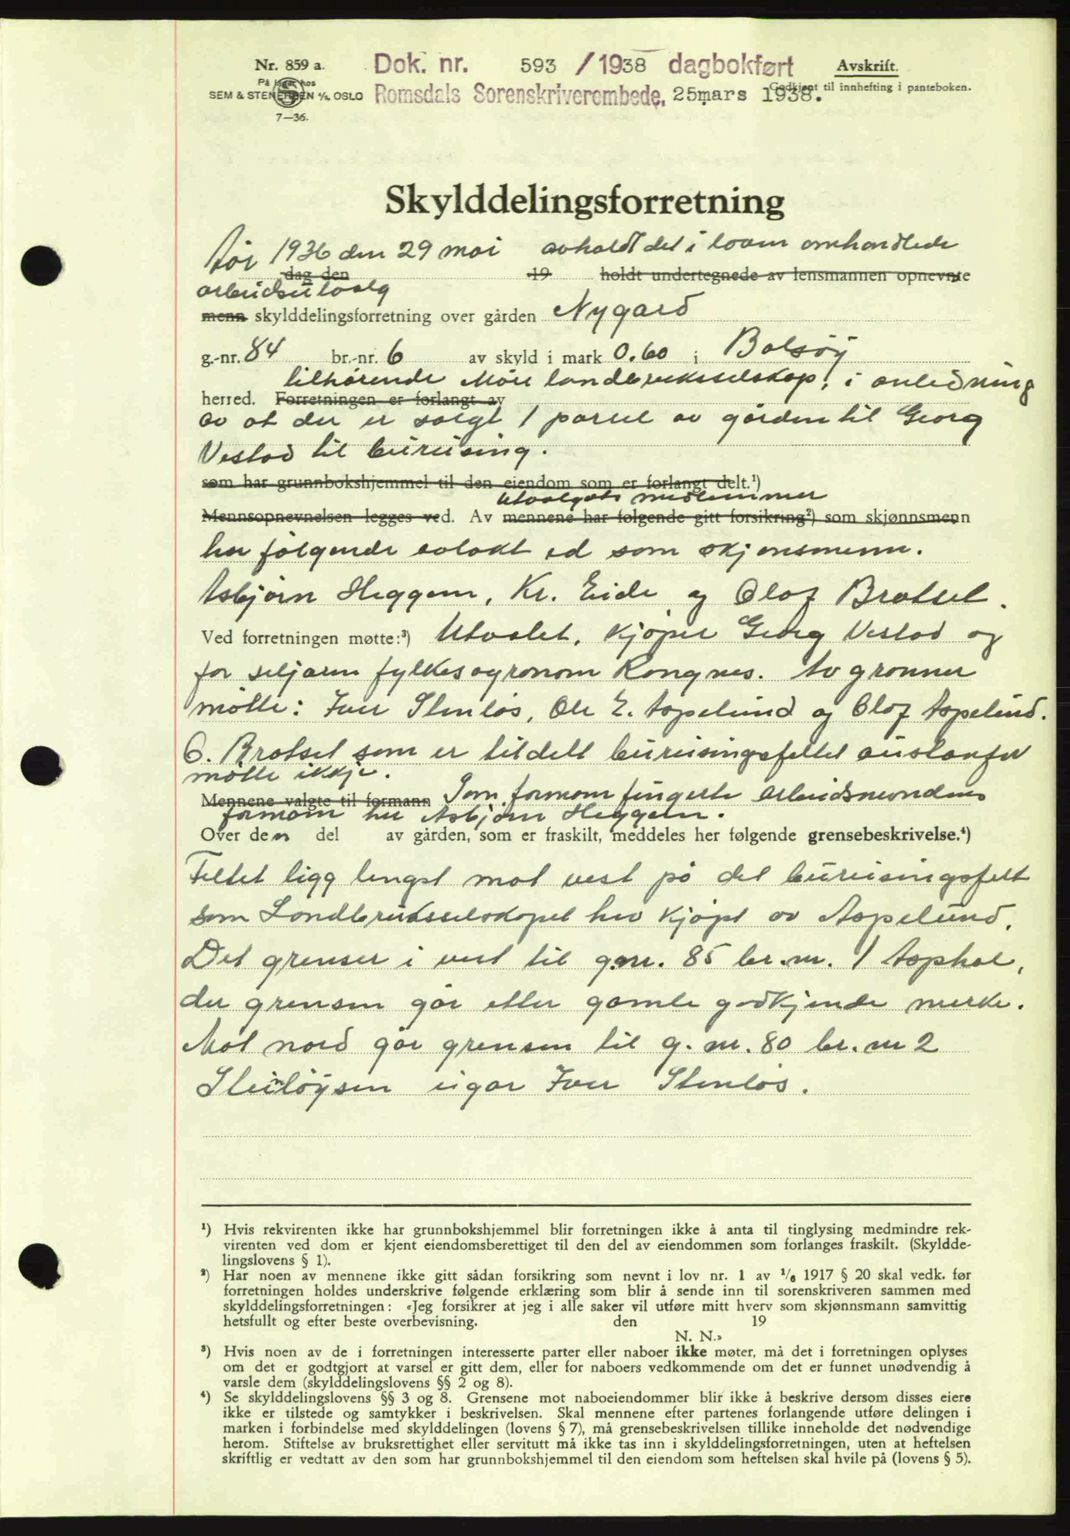 Nr. 859 a.
På lager hos
SEM & STENERSEN A/S, OSLO
7—36.
Dok. nr. 593 / 1938 dagbokført
Romsdals Sorenskriverembede, 25 mars 1938.
Avskrift.
Godkjent til innhefting i panteboken.
Skylddelingsforretning
År 1936 den 29 mai avholdt det i loven omhandlede
dag den 19 holdt undertegnede av lensmannen opnevnte
arbeidsutvalg
menn skylddelingsforretning over gården Nygard
g.-nr. 84 br.-nr. 6 av skyld i mark 0.60 i Bolsøy
tilhørende Møre landbruksselskap, i anledning
herred. Forretningen er forlangt av
av at der er solgt 1 parsel av gården til Georg
Vestad til bureising.
som har grunnbokshjemmel til den eiendom som er forlangt delt.¹)
Utvalgets medlemmer
Mennsopnevnelsen legges ved. Av mennene har følgende gitt forsikring²) som skjønnsmenn
har følgende avlakt ed som skjønsmenn.
Asbjørn Heggem, Kr. Eide og Olaf Bratset.
Ved forretningen møtte:³) Utvalet, kjøper Georg Vestad og
for seljaren fylkesagronom Rongnes. Av grannar
møtte: Iver Stenløs, Ole E. Aspelund og Olaf Aspelund.
G. Bratset som er tildelt bureisingsfeltet austanfor
møtte ikkje.
Mennene valgte til formann Som formann fungerte arbeidsnevndens
formann her Asbjørn Heggem.
Over den del av gården, som er fraskilt, meddeles her følgende grensebeskrivelse.⁴)
Feltet ligg lengst mot vest på det bureisingsfelt
som Landbruksselskapet hev kjøpt av Aspelund.
Det grenser i vest til g.nr. 85 br.nr. 1 Asphol,
der grensen går etter gamle godkjende merke.
Mot nord går grensen til g. nr. 80 br. nr 2
Steinløysen eigar Iver Stenløs.
¹) Hvis rekvirenten ikke har grunnbokshjemmel blir forretningen ikke å anta til tinglysing medmindre rek-
virenten ved dom er kjent eiendomsberettiget til den del av eiendommen som forlanges fraskilt. (Skyldde-
lingslovens § 1).
²) Har noen av mennene ikke gitt sådan forsikring som nevnt i lov nr. 1 av ¹/₆ 1917 § 20 skal vedk. før
forretningen holdes underskrive følgende erklæring som blir å sende inn til sorenskriveren sammen med
skylddelingsforretningen: «Jeg forsikrer at jeg i alle saker vil utføre mitt hverv som skjønnsmann samvittig
hetsfullt og efter beste overbevisning. den 19
N. N.»
³) Hvis noen av de i forretningen interesserte parter eller naboer ikke møter, må det i forretningen oplyses
om det er godtgjort at varsel er gitt dem, eller for naboers vedkommende om det er funnet unødvendig å
varsle dem (skylddelingslovens §§ 2 og 8).
⁴) Se skylddelingslovens §§ 3 og 8. Grensene mot naboeiendommer blir ikke å beskrive dersom disses eiere
ikke er tilstede og samtykker i beskrivelsen. Skal mennene efter partenes forlangende utføre delingen i
marken i forbindelse med skylddelingen (lovens § 7), må grensebeskrivelsen tillike inneholde det nødvendige
herom. Stiftelse av bruksrettighet eller servitutt må ikke tas inn i skylddelingsforretningen, uten at heftelsen
skriftlig er vedtatt av den som har grunnbokshjemmel til den eiendom som heftelsen skal hvile på (lovens § 5).